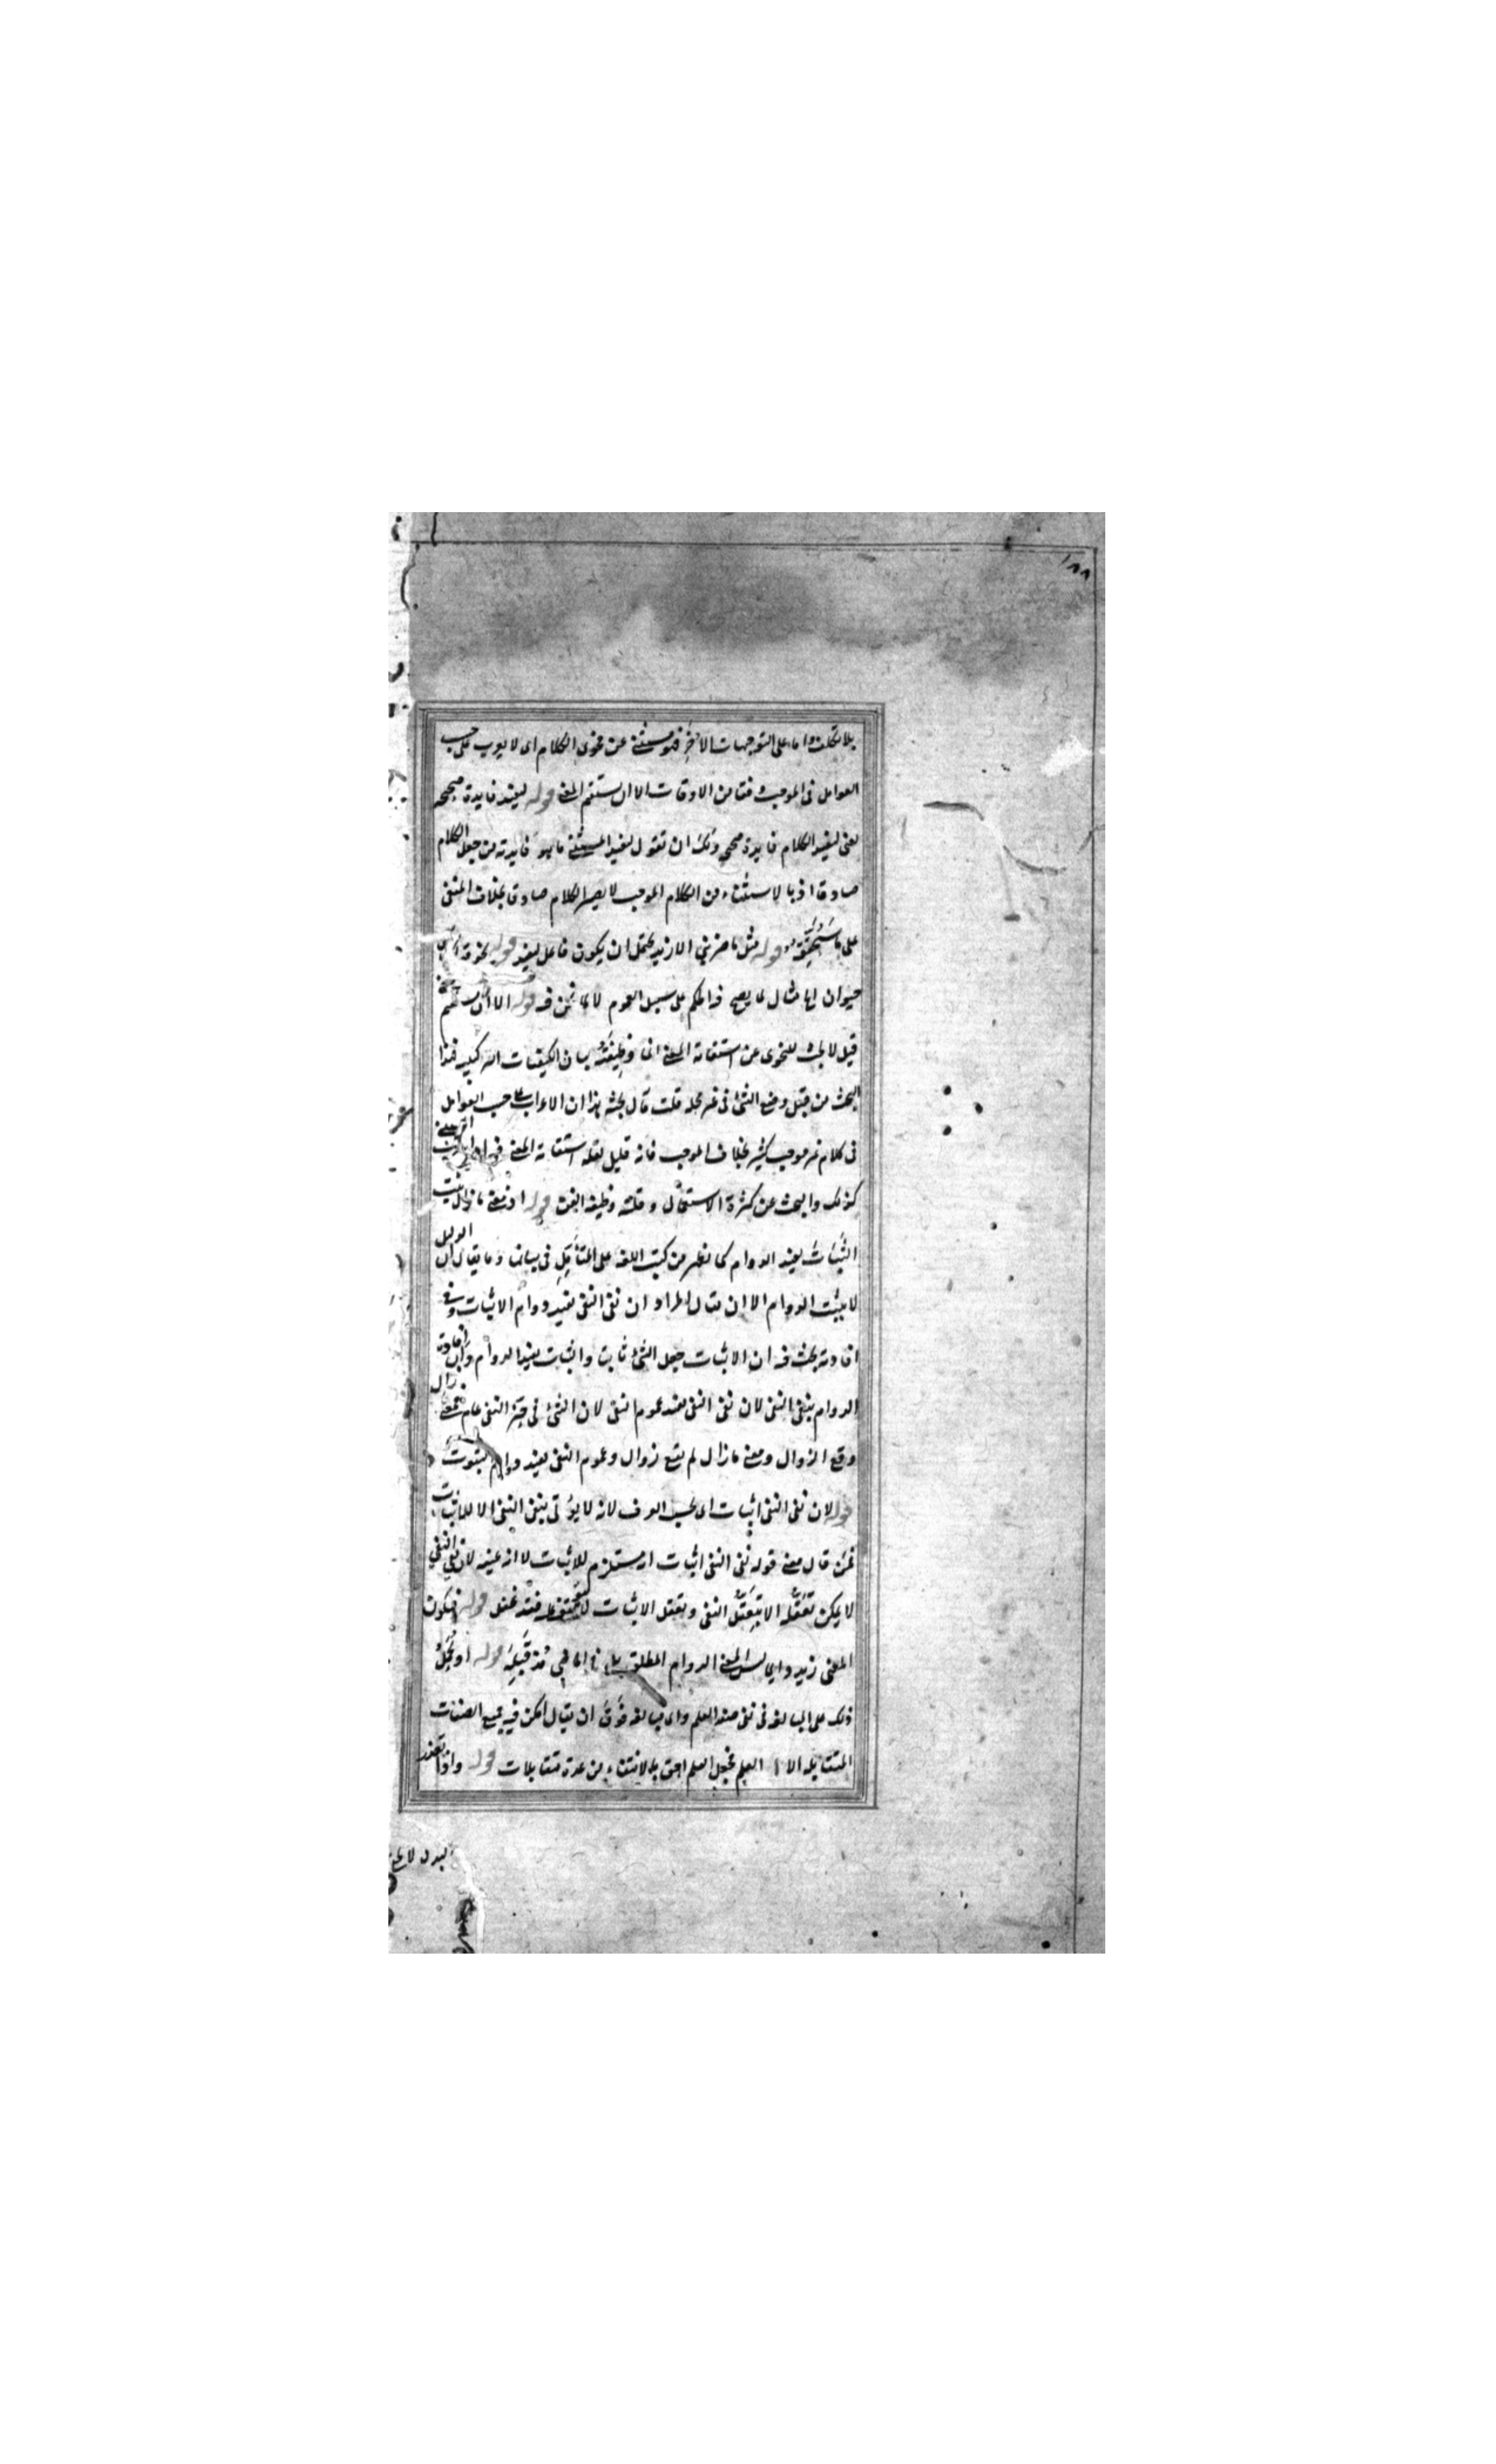 ١٨٨
بلا تكلف واما على التوجيهات الاخر فهو مستثنى عن فحوى الكلام اى لا يعرب على حسب
العوامل فى الموجب وقتا من الاوقات الا ان يستقيم المعنى قوله ليفيد فايدة صحيحة
يعنى ليفيد الكلام فايدة صحيحة ولك ان تقول ليفيد المستثنى ما هو فايدته من جعل الكلام
صادقا اذ بالاستثناء من الكلام الموجب لا يصير الكلام صادقا بخلاف المنفى
على ما ستحققه قوله مثل ما ضربنى الا زيد يحتمل ان يكون فاعل ليفيد قوله
حيوان اما مثال لما يصح فيه الحكم على سبيل العموم لا لما نحن فيه قوله الا ان يستقيم المعنى
قيل لا بحث للنحوى عن استقامة المعنى انما وظيفته بيان الكيفيات التركيبية فهذا
البحث من قبيل وضع الشئ فى غير محله قلت مآل بحثه هذا ان الاعراب على حسب العوامل
فى كلام غير موجب كثير بخلاف الموجب فانه قليل لقلة استقامة المعنى فيه
كذلك والبحث عن كثرة الاستعمال وقلته وظيفة الفن قوله اذ معنى ما زال ثبت
الثبات يفيد الدوام كما يظهر من كتب اللغة على المتأمل فى بيانه وما يقال ان الدليل
لا يثبت الدوام الا ان يقال المراد ان نفى النفى يفيد دوام الاثبات وفى
افادته بحث فيه ان الاثبات جعل الشئ ثابتا والثبات يفيد الدوام وان افادته
الدوام بنفى النفى لان نفى النفى يفيد عموم النفى لان الشئ فى حيز النفى عام فمعنى زال
وقع الزوال ومعنى ما زال لم يقع زوال وعموم النفى يفيد دوام الثبوت
قوله لان نفى النفى اثبات اى بحسب العرف لانه لا يؤتى بنفى النفى الا للاثبات
فمن قال معنى قوله نفى النفى اثبات انه مستلزم للاثبات لا انه عينه لان نفى النفى
لا يمكن تعقله الا بتعقل النفى وتعقل الاثبات لا يتوقف عليه فقد غفل قوله فيكون
المعنى زيد دايما ليس المعنى الدوام المطلق قوله او يحمل
ذلك على المبالغة فى نفى صفة العلم واى مبالغة فوق ان يقال امكن فيه جميع الصفات
المتقابلة الا العلم فجعل العلم احق بالانتفاء من عدة متقابلات قوله واذا تعذر
البدل